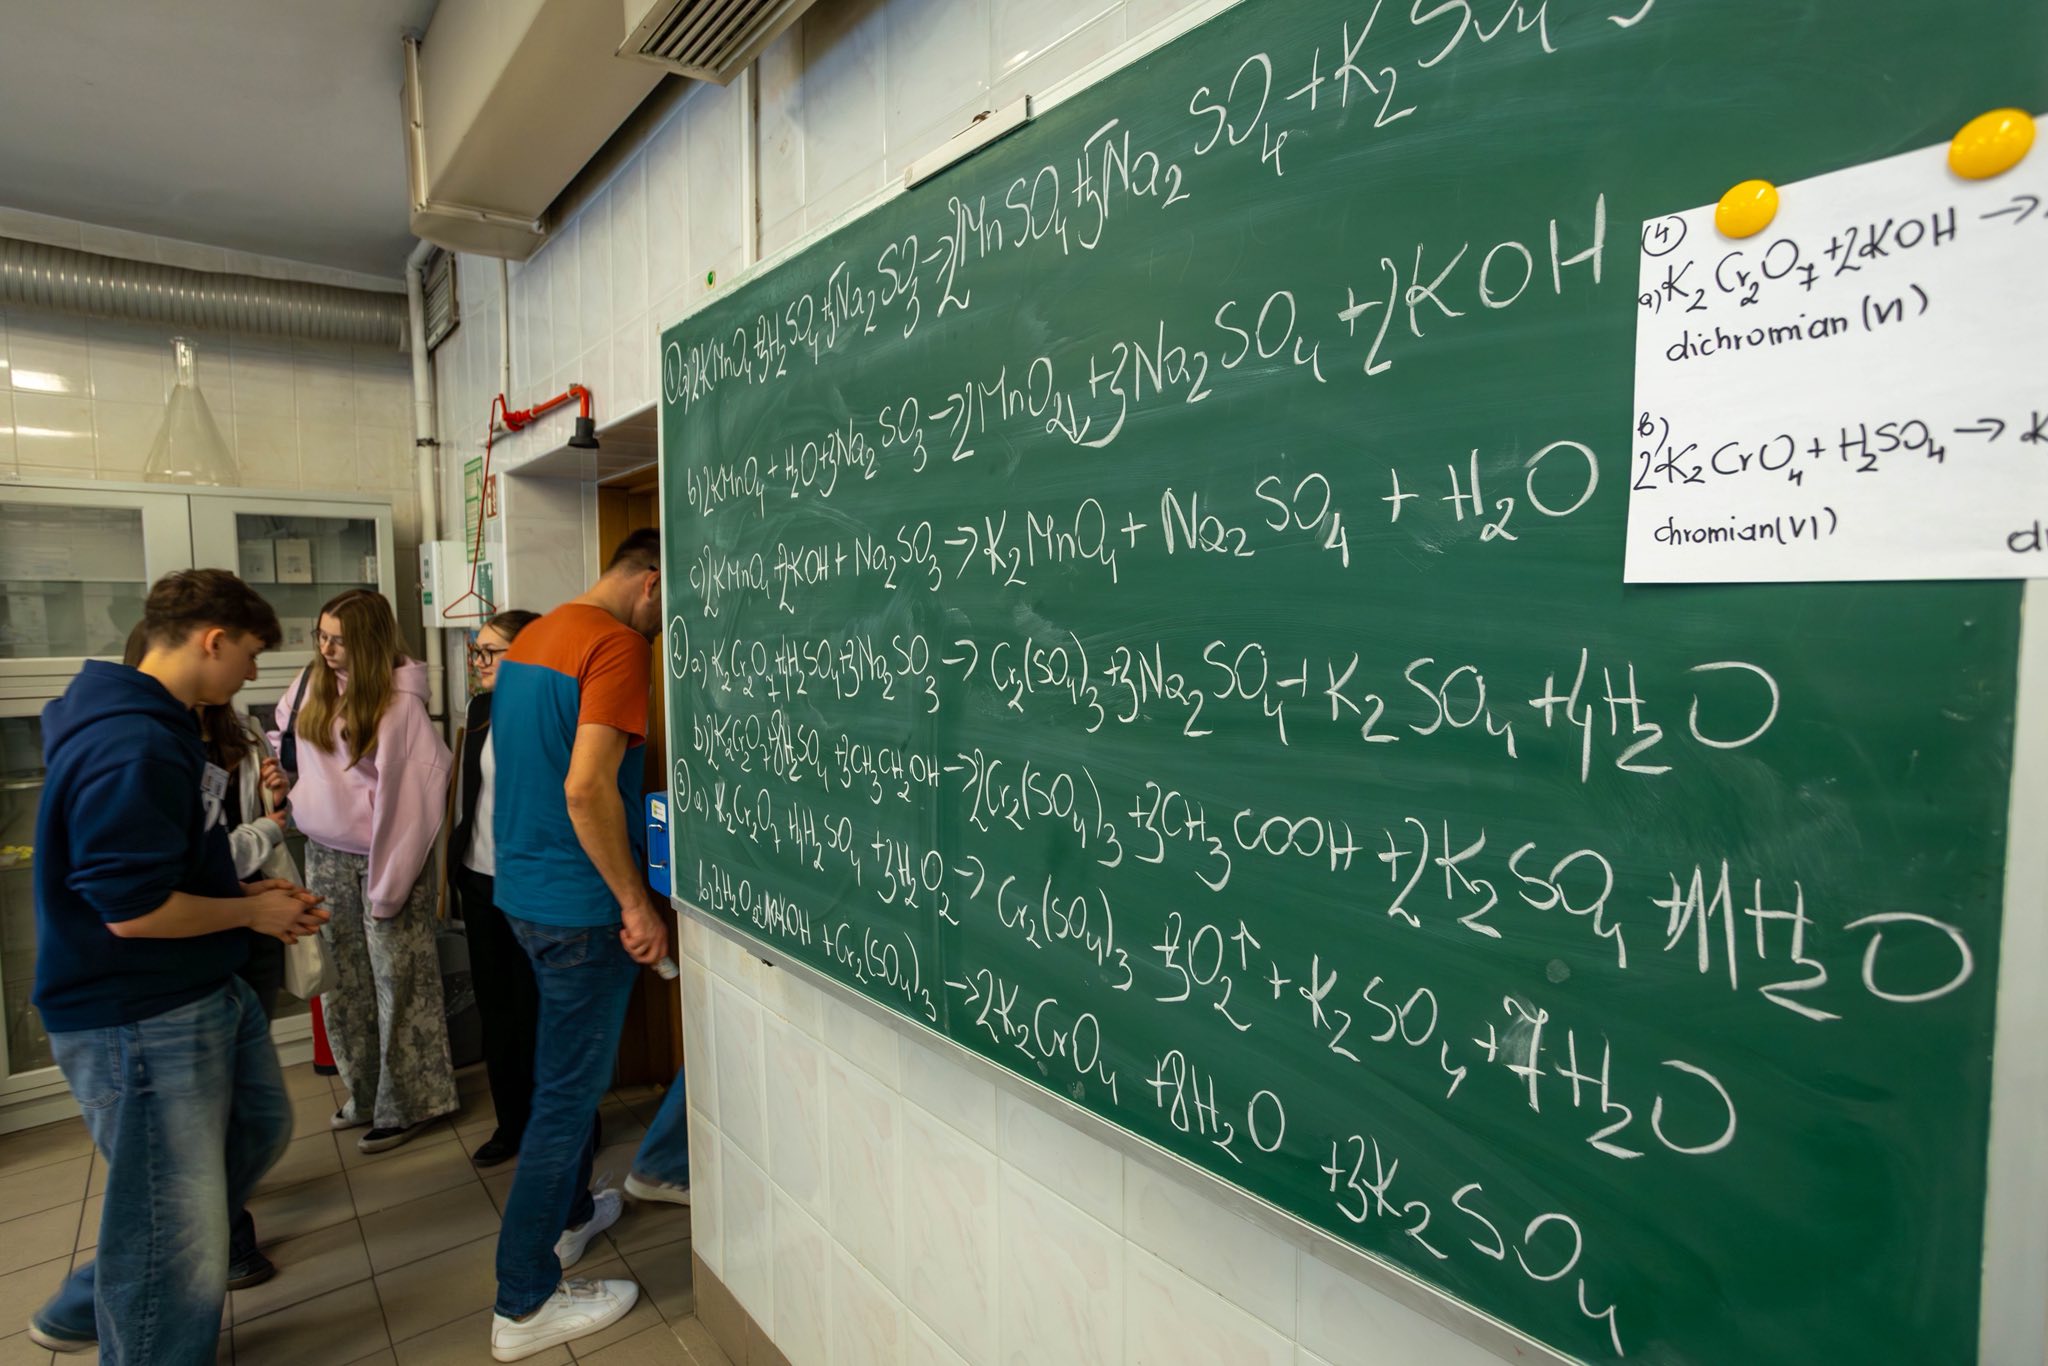 ① a) 2KMnO₄ + 3H₂SO₄ + 5Na₂SO₃ → 2MnSO₄ + 5Na₂SO₄ + K₂SO₄
b) 2KMnO₄ + H₂O + 3Na₂SO₃ → 2MnO₂↓ + 3Na₂SO₄ + 2KOH
c) 2KMnO₄ + 2KOH + Na₂SO₃ → K₂MnO₄ + Na₂SO₄ + H₂O
② a) K₂Cr₂O₇ + 4H₂SO₄ + 3Na₂SO₃ → Cr₂(SO₄)₃ + 3Na₂SO₄ + K₂SO₄ + 4H₂O
b) 2K₂Cr₂O₇ + 8H₂SO₄ + 3CH₃CH₂OH → 2Cr₂(SO₄)₃ + 3CH₃COOH + 2K₂SO₄ + 11H₂O
③ a) K₂Cr₂O₇ + 4H₂SO₄ + 3H₂O₂ → Cr₂(SO₄)₃ + 3O₂↑ + K₂SO₄ + 7H₂O
b) 3H₂O₂ + 10KOH + Cr₂(SO₄)₃ → 2K₂CrO₄ + 8H₂O + 3K₂SO₄
④
a) K₂Cr₂O₇ + 2KOH →
dichromian (VI)
b)
2K₂CrO₄ + H₂SO₄ → K
chromian(VI)